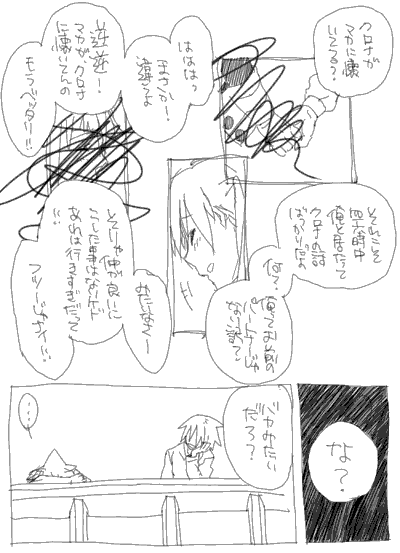 クロナが
マカに懐
いてる？
ははは、
まさか！
違うよ
逆逆！
マカが、クロナ
に懐いてんの
もうベッタリ！！
それこそ
四六時中
俺と居たって
クロナの話
ばっかりだよ
何？
俺ってお前の
パートナーじゃ
ない訳？
みたいなさー
そりゃ仲が良いに
こした事はないんだ
あれは行きすぎだって
フツーじゃナイ！！
な？
バカみたい
だろ？
…